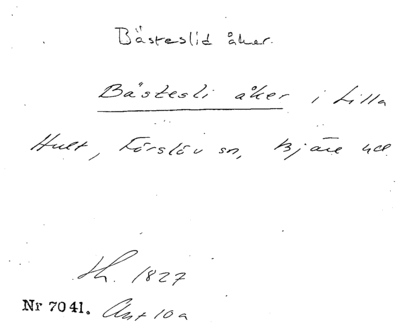 Bästeslid åker.
Bästesli åker i Lilla
Hult, Förslöv sn, Bjäre hd
Sk. 1827
Nr 7041. Akt 10a